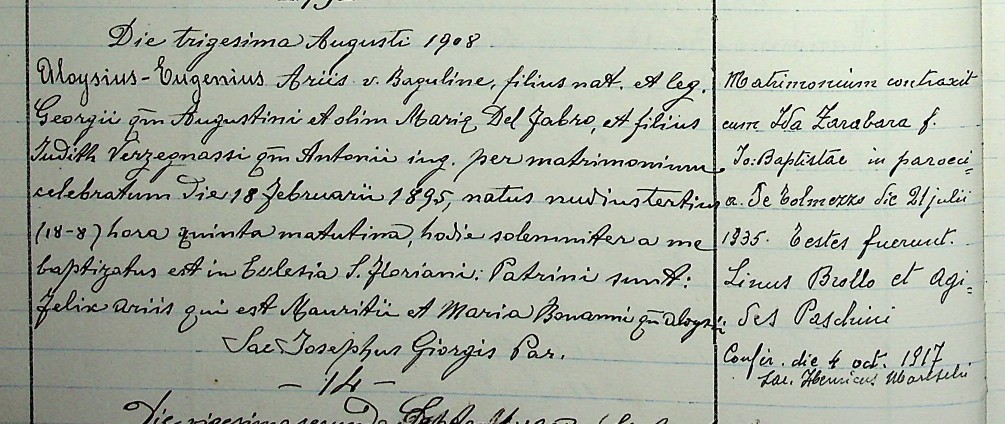 Die trigesima Augusti 1908
Aloysius-Eugenius Ariis v. Baguline, filius nat. et leg.
Georgii qm Augustini et olim Mariæ Del Fabro, et filius
Judith Verzegnassi qm Antonii ing. per matrimonium
celebratum die 18 Februarii 1895, natus nudiustertius
(18-8) hora quinta matutina, hodie solemniter a me
baptizatus est in Ecclesia S. Floriani: Patrini sunt:
Felix Ariis qui est Mauritii et Maria Bonanni qm Aloysii.
Sac. Josephus Giorgis Par.
- 14 -
Die vigesima secunda
Matrimonium contraxit
cum Ida Zarabara f.
Jo: Baptistae in paroeci=
a. De Tolmezzo die 21 julii
1935. Testes fuerunt.
Linus Brollo et Agi=
des Paschini
Confir. die 4 oct. 1917
Sac. Henricus